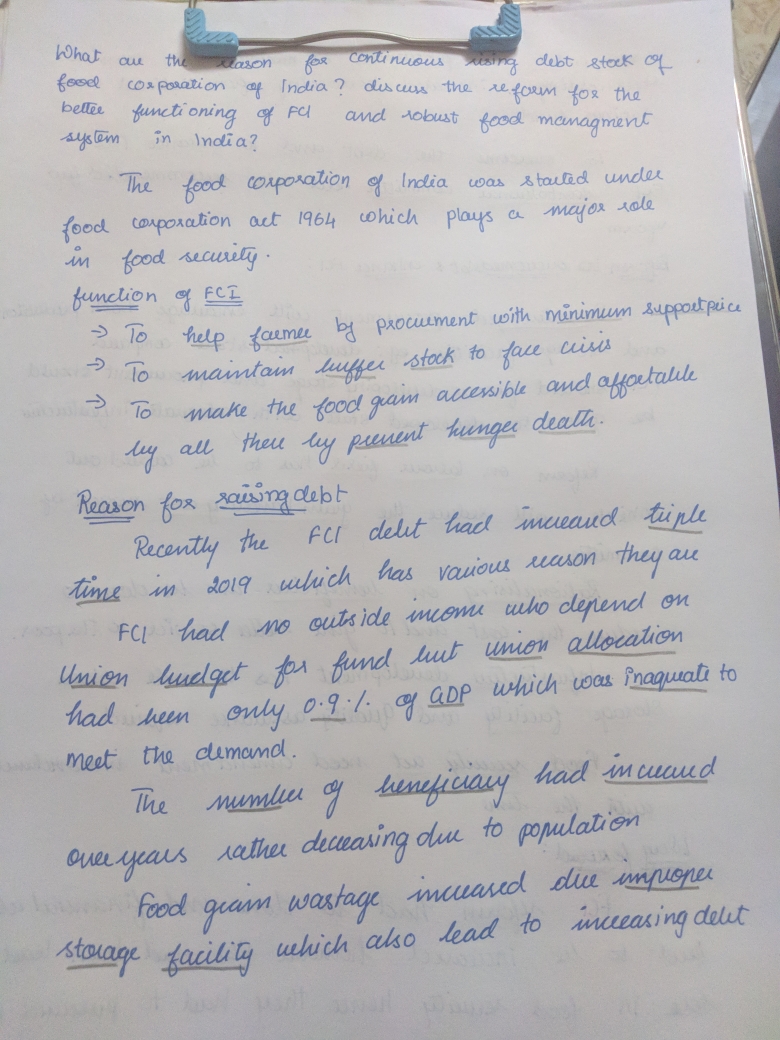 What are the reason for continuous rising debt stock of
food corporation of India? discuss the reform for the
better functioning of FCI and robust food managment
system in India?
The food corporation of India was started under
food corporation act 1964 which plays a major role
in food security.
function of FCI
→ To help farmer by procurement with minimum support price
→ To maintain buffer stock to face crisis
→ To make the food grain accessible and affortable
by all there by prevent hunger death.
Reason for raising debt
Recently the FCI debt had increased triple
time in 2019 which has various reason they are
FCI had no outside income who depend on
Union budget for fund but union allocation
had been only 0.9% of GDP which was inaquate to
meet the demand.
The number of beneficiary had increased
over years rather decreasing due to population
Food grain wastage increased due improper
storage facility which also lead to increasing debt